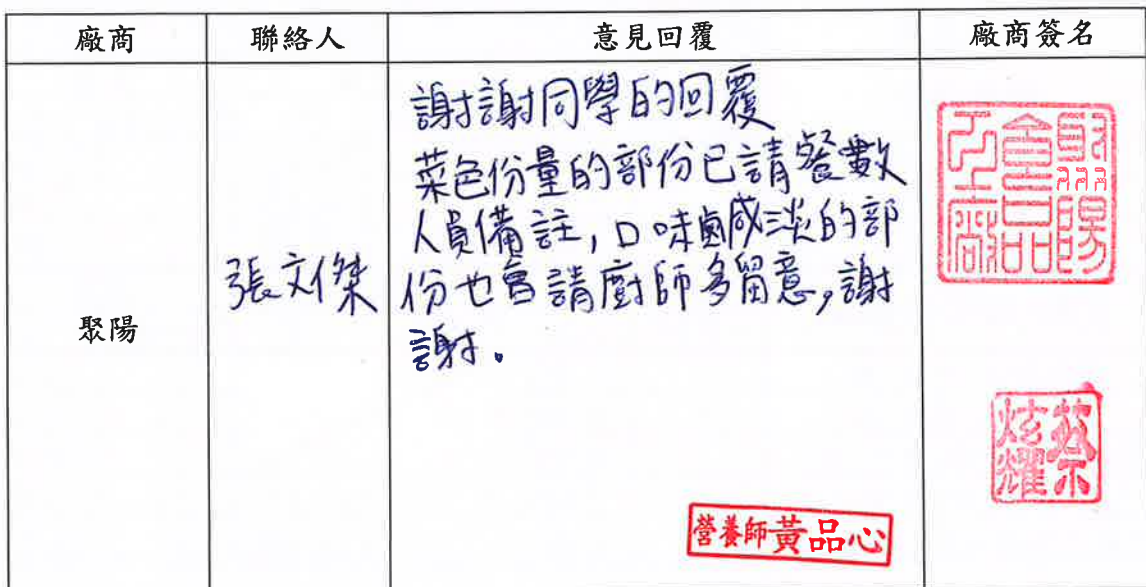 廠商 聯絡人 意見回覆 廠商簽名
聚陽
張文傑
謝謝同學的回覆
菜色份量的部份已請餐數
人員備註,口味鹹淡的部
份也會請廚師多留意,謝
謝。
聚陽
食品
工廠
蔡
炫耀
營養師黃品心